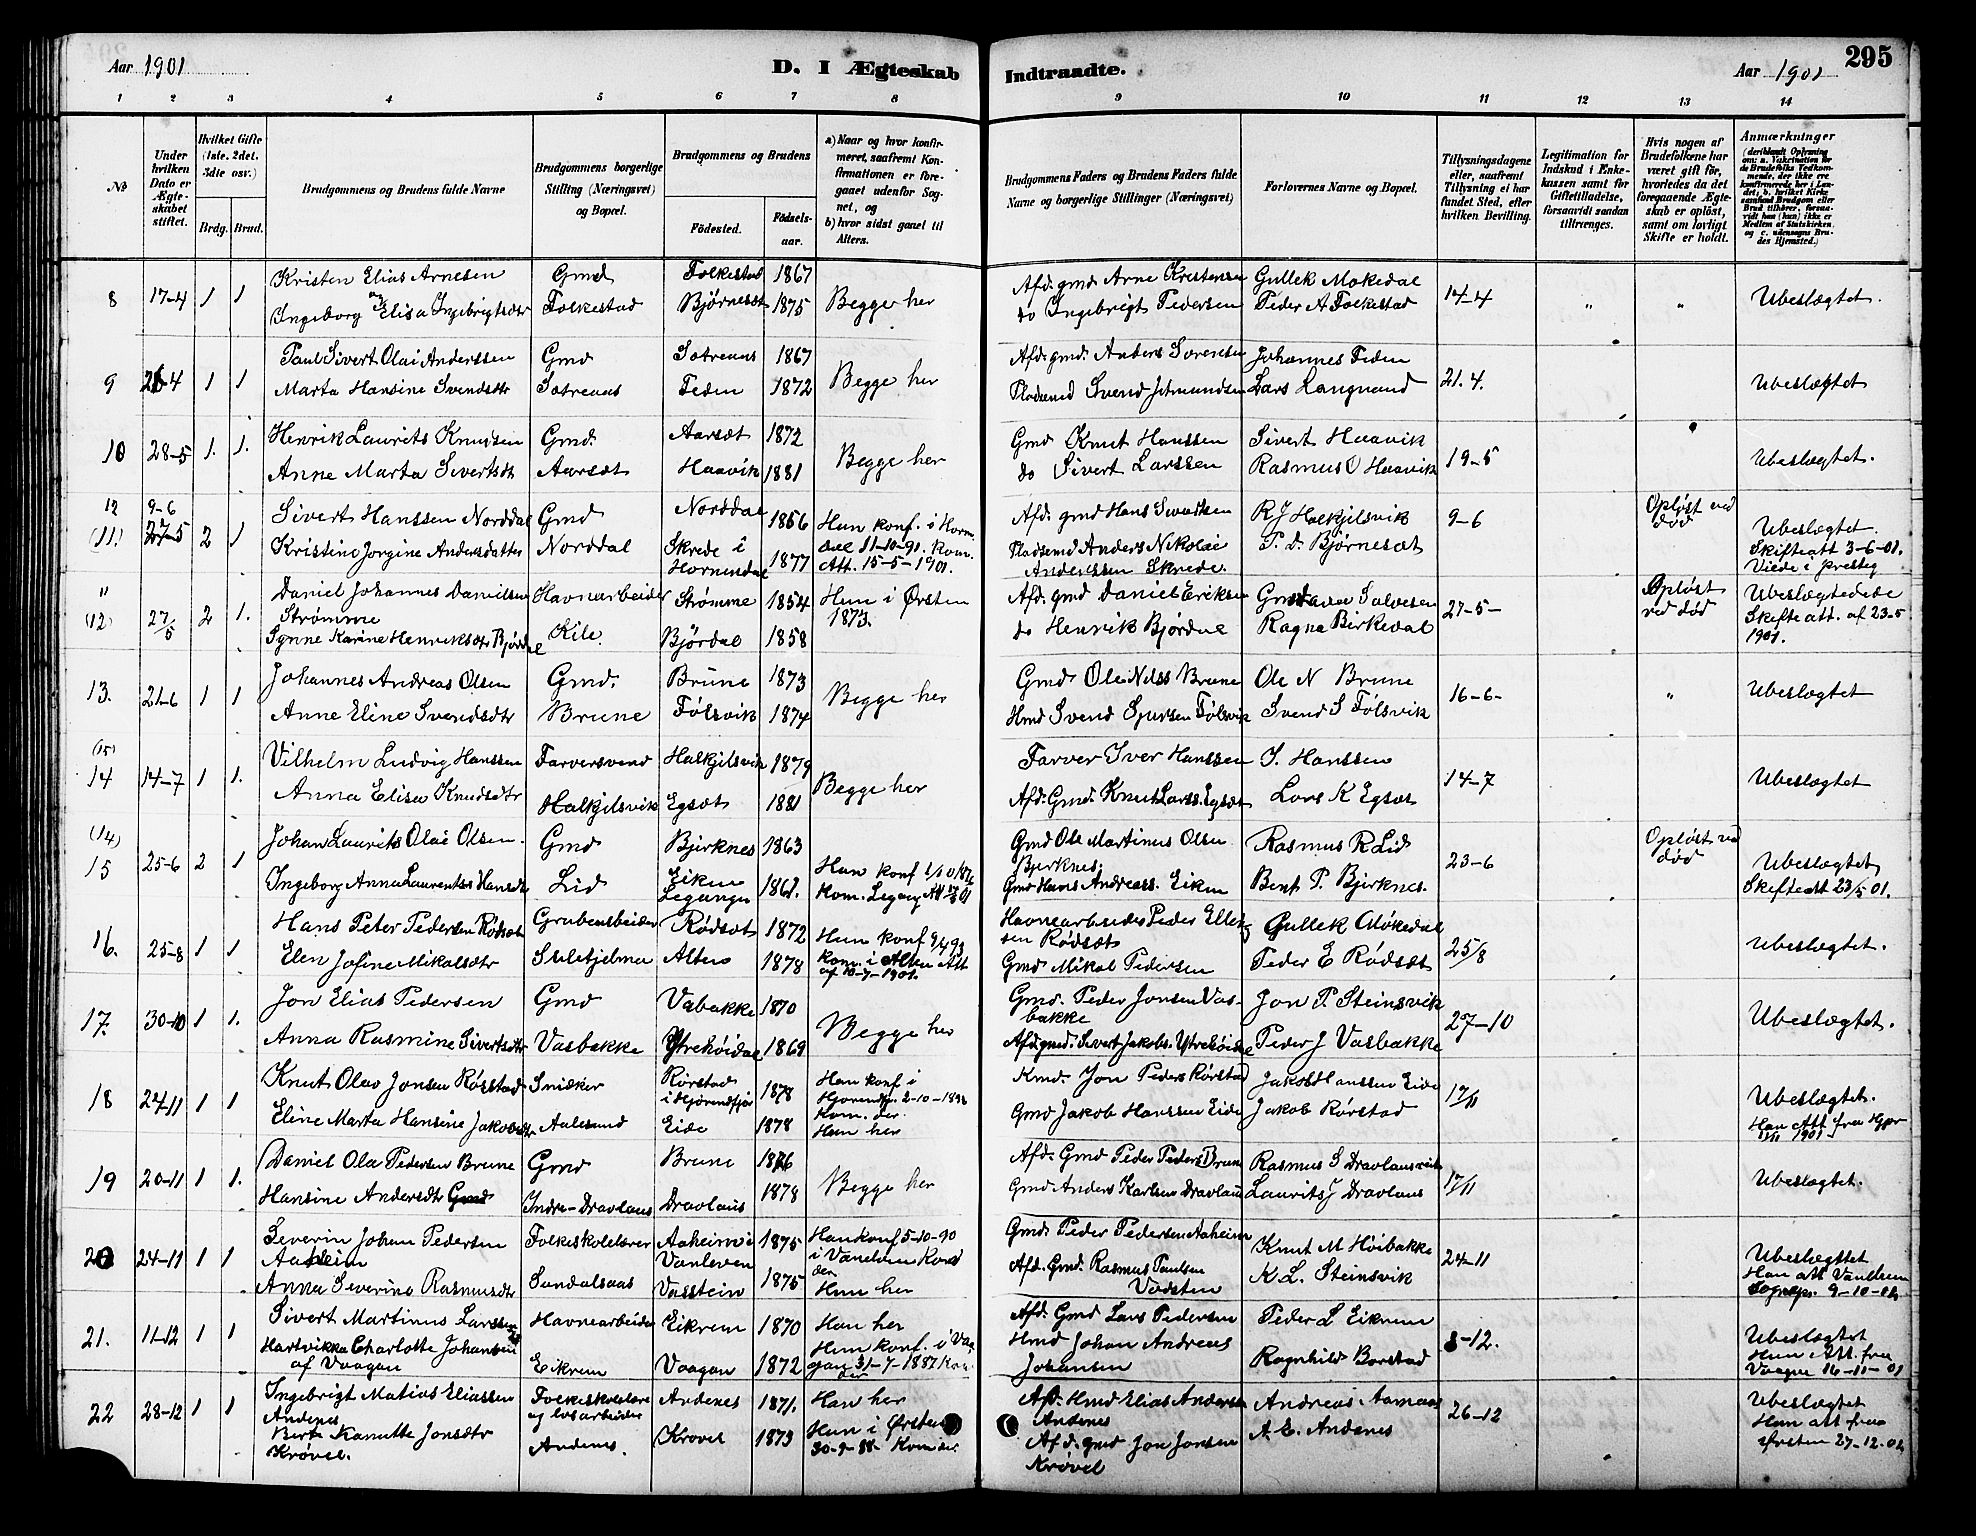 295
Aar 1901
D. I Ægteskab Indtraadte.
Aar 1901
1 2 3 4 5 6 7 8 9 10 11 12 13 14
No
Under hvilken Dato er Ægteskabet stiftet.
Hvilket Gifte (1ste. 2det. 3die osv.)
Brdg. Brud.
Brudgommens og Brudens fulde Navne
Brudgommens borgerlige Stilling (Næringsvei) og Bopæl.
Brudgommens og Brudens
Fødested.
Fødselsaar.
a) Naar og hvor konfirmeret, saafremt Konfirmationen er foregaaet udenfor Sognet, og
b) hvor sidst gaaet til Alters.
Brudgommens Faders og Brudens Faders fulde Navne og borgerlige Stillinger (Næringsvei)
Forlovernes Navne og Bopæl.
Tillysningsdagene eller, saafremt Tillysning ei har fundet Sted, efter hvilken Bevilling.
Legitimation for Indskud i Enkekassen samt for Giftetilladelse, forsaavidt saadan tiltrænges.
Hvis nogen af Brudefolkene har været gift før, hvorledes da det foregaaende Ægteskab er opløst, samt om lovligt Skifte er holdt.
Anmærkninger
8 17-4 1 1 Kristen Elias Arnesen Gmd Folkestad 1867 Afd. gmd Arne Kristensen Gullek Møkedal
Ingeborg Elisa Ingebrigtsdtr Folkestad Bjørneset 1875 Begge her do Ingebrigt Pedersen Peder A Folkestad 14-4 " " Ubeslægtet.
9 26-4 1 1 Paul Sivert Olai Anderssen Gmd Sætreaas 1867 Afd. gmd. Anders Sørensen Johannes Feden
Marta Hansine Svendsdtr Sætreaas Feden 1872 Begge her Pladsmd Svend Lars Langnand 21.4. Ubeslægtet
10 28-5 1. 1. Henrik Laurits Knudsen Gmd. Aarsæt 1872 Gmd Knut Hanssen Sivert Haavik
Anne Marta Sivertsdtr Aarsæt Haavik 1881 Begge her do Sivert Larssen Rasmus O Haavik 19-5 Ubeslægtet.
12 9-6
(11.) 27-5 2 1 Sivert Hanssen Norddal Gmd Norddal 1856 Hun konf. i Horn- Afd. gmd Hans Sivertsen R J Halkjilsvik 9-6 Opløst ved død Ubeslægtet.
Kristine Jorgine Andersdatter Norddal Skrede i Hornindal 1877 dal 11-10-91. Kom. Att. 15-5-1901. Pladsmd Anders Nikolai Anderssen Skrede. P. D. Bjørneset Skifteatt 3-6-01. Viede i presteg
"
(12) 27/5 2 1. Daniel Johannes Danielsen Strømme Havnearbeider Strømme 1854 Hun i Ørsten 1873. Afd. gmd Daniel Eriksen 27-5- Opløst ved død Ubeslægtedede
Synne Karine Henriksdtr Bjørdal Kile. Bjørdal 1858 do Henrik Bjørdal Ragna Birkedal Skifteatt. af 23-5 1901.
13. 21-6 1 1 Johannes Andreas Olsen Gmd. Brune 1873 Gmd Ole Nilss Brune Ole N Brune
Anne Eline Svendsdtr Brune Følsvik 1874 Begge her Hmd Svend Sjursen Følsvik Svend S Følsvik 16-6- " Ubeslægtet
(15)
14 14-7 1 1. Vilhelm Ludvig Hanssen Farversvend Halkjilsvik 1879 Farver Iver Hanssen I. Hanssen
Anna Elisa Knudsdtr Halkjilsvik Egset 1881 Begge her Afd. Gmd. Knut Larss. Egset Lars K Egset 14-7 Ubeslægtet
(14)
15 25-6 2 1 Johan Laurits Olai Olsen. Gmd Bjerknes 1863 Gmd Ole Martinus Olsen Bjerknes. Rasmus R Lid 23-6 Opløst ved død Ubeslægtet
Ingeborg Anna Laurentse Hansdtr Lid Eiken Leganger Gmd Hans Andreass. Eiken Bent P. Bjerknes. Skifteatt 23/5 01.
16. 25-8 1 1 Hans Peter Pedersen Rødsæt Grubearbeider Rødsæt 1872 Hun konf 9/4 93 Havnearbeider Peder Ellefsen Rødsæt Gullek Møkedal
Elen Jofine Mikalsdtr Sulitjelma Alten 1878 kom. i Alten Att af 10-7-1901. Gmd Mikal Pedersen Peder E Rødsæt 25/8 Ubeslægtet.
17. 30-10 1 1. Jon Elias Pedersen Gmd Vasbakke 1870 Gmd. Peder Jonsen Vasbakke Jon P. Steinsvik
Anna Rasmine Sivertsdtr Vasbakke Ytrehøidal 1869 Begge her Afd. gmd. Sivert Jakobs. Ytrehøidal Peder J Vasbakke 27-10 Ubeslægtet.
18 24-11 1 1 Knut Olav Jonsen Rørstad Snidker Rørstad i Hjørendfjor 1878 Han konf i Hjørendfj. 2-10-1892 Kom. der. Kmd. Jon Peders Rørstad Jakob Hanssen Eide
Eline Marta Hansine Jakobsdtr Aalesund Eide 1878 Hun her Gmd Jakob Hanssen Eide Jakob Rørstad 17/11 Ubeslægtet. Han Att fra Hjør 1901
19 20-11 1 1. Daniel Ola Pedersen Brune Gmd Brune 1876 Afd. Gmd Peder Peders Brune Rasmus S Dravlausvik
Hansine Andersdtr Indre-Dravlaus Dravlaus 1878 Begge her Gmd Anders Karlsen Dravlaus Laurits J Dravlaus 17/11 Ubeslægtet.
20 24-11 1 1 Severin Johan Pedersen Aaheim Folkeskolelærer Aaheim i Vanelven 1875 Han konf 5-10-90 i Vanelven Kom der Gmd. Peder Pedersen Aaheim Knut M Høibakke
Anna Severine Rasmusdtr Sandalsaas Vasstein 1875 Hun her Afd. Gmd. Rasmus Paulsen Vadsten K. L. Steinsvik 24-11 Ubeslægtet Han att Vanelven
21. 11-12 1 1 Sivert Martinus Larssen Havnearbeider Eikrem 1870 Han her Afd. Gmd Lars Pedersen Peder L Eikrem
Hartvikka Charlotte Johansen af Vaagan Eikrem Vaagan 1872 Hun konf. i Vaagan 31-7-1887 Kom. der Hmd Johan Andreas Johansen Ragnhild Borstad 8-12. Ubeslægtet Hun Att. fra Vaagan 16-11-01
22 28-12 1 1 Ingebrigt Matias Eliassen Andenes Folkeskolelære og løsarbeider Andenes 1871. Han her Afd. Hmd Elias Andersen Andenes Andreas Aamaas
Berte Kanutte Jonsdtr Krøvel. Andenes. Krøvel 1873 Hun i Ørsten 30-9-88- Kom der. Afd. gmd Jon Jonsen Krøvel A. E. Andenes 26-12 Ubeslægtet Han att fraa Ørsten 27-12.01